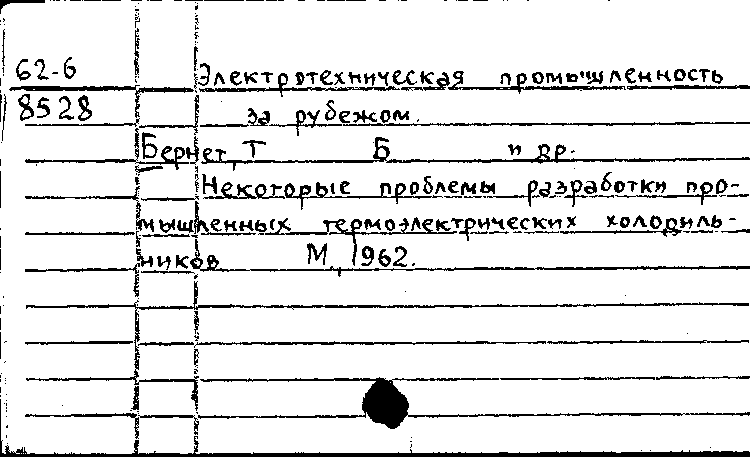 62-6 Электротехническая промышленность
8528 за рубежом.
Бернет, Т Б и др.
Некоторые проблемы разработки про-
мышленных термоэлектрических холодиль-
ников М., 1962.